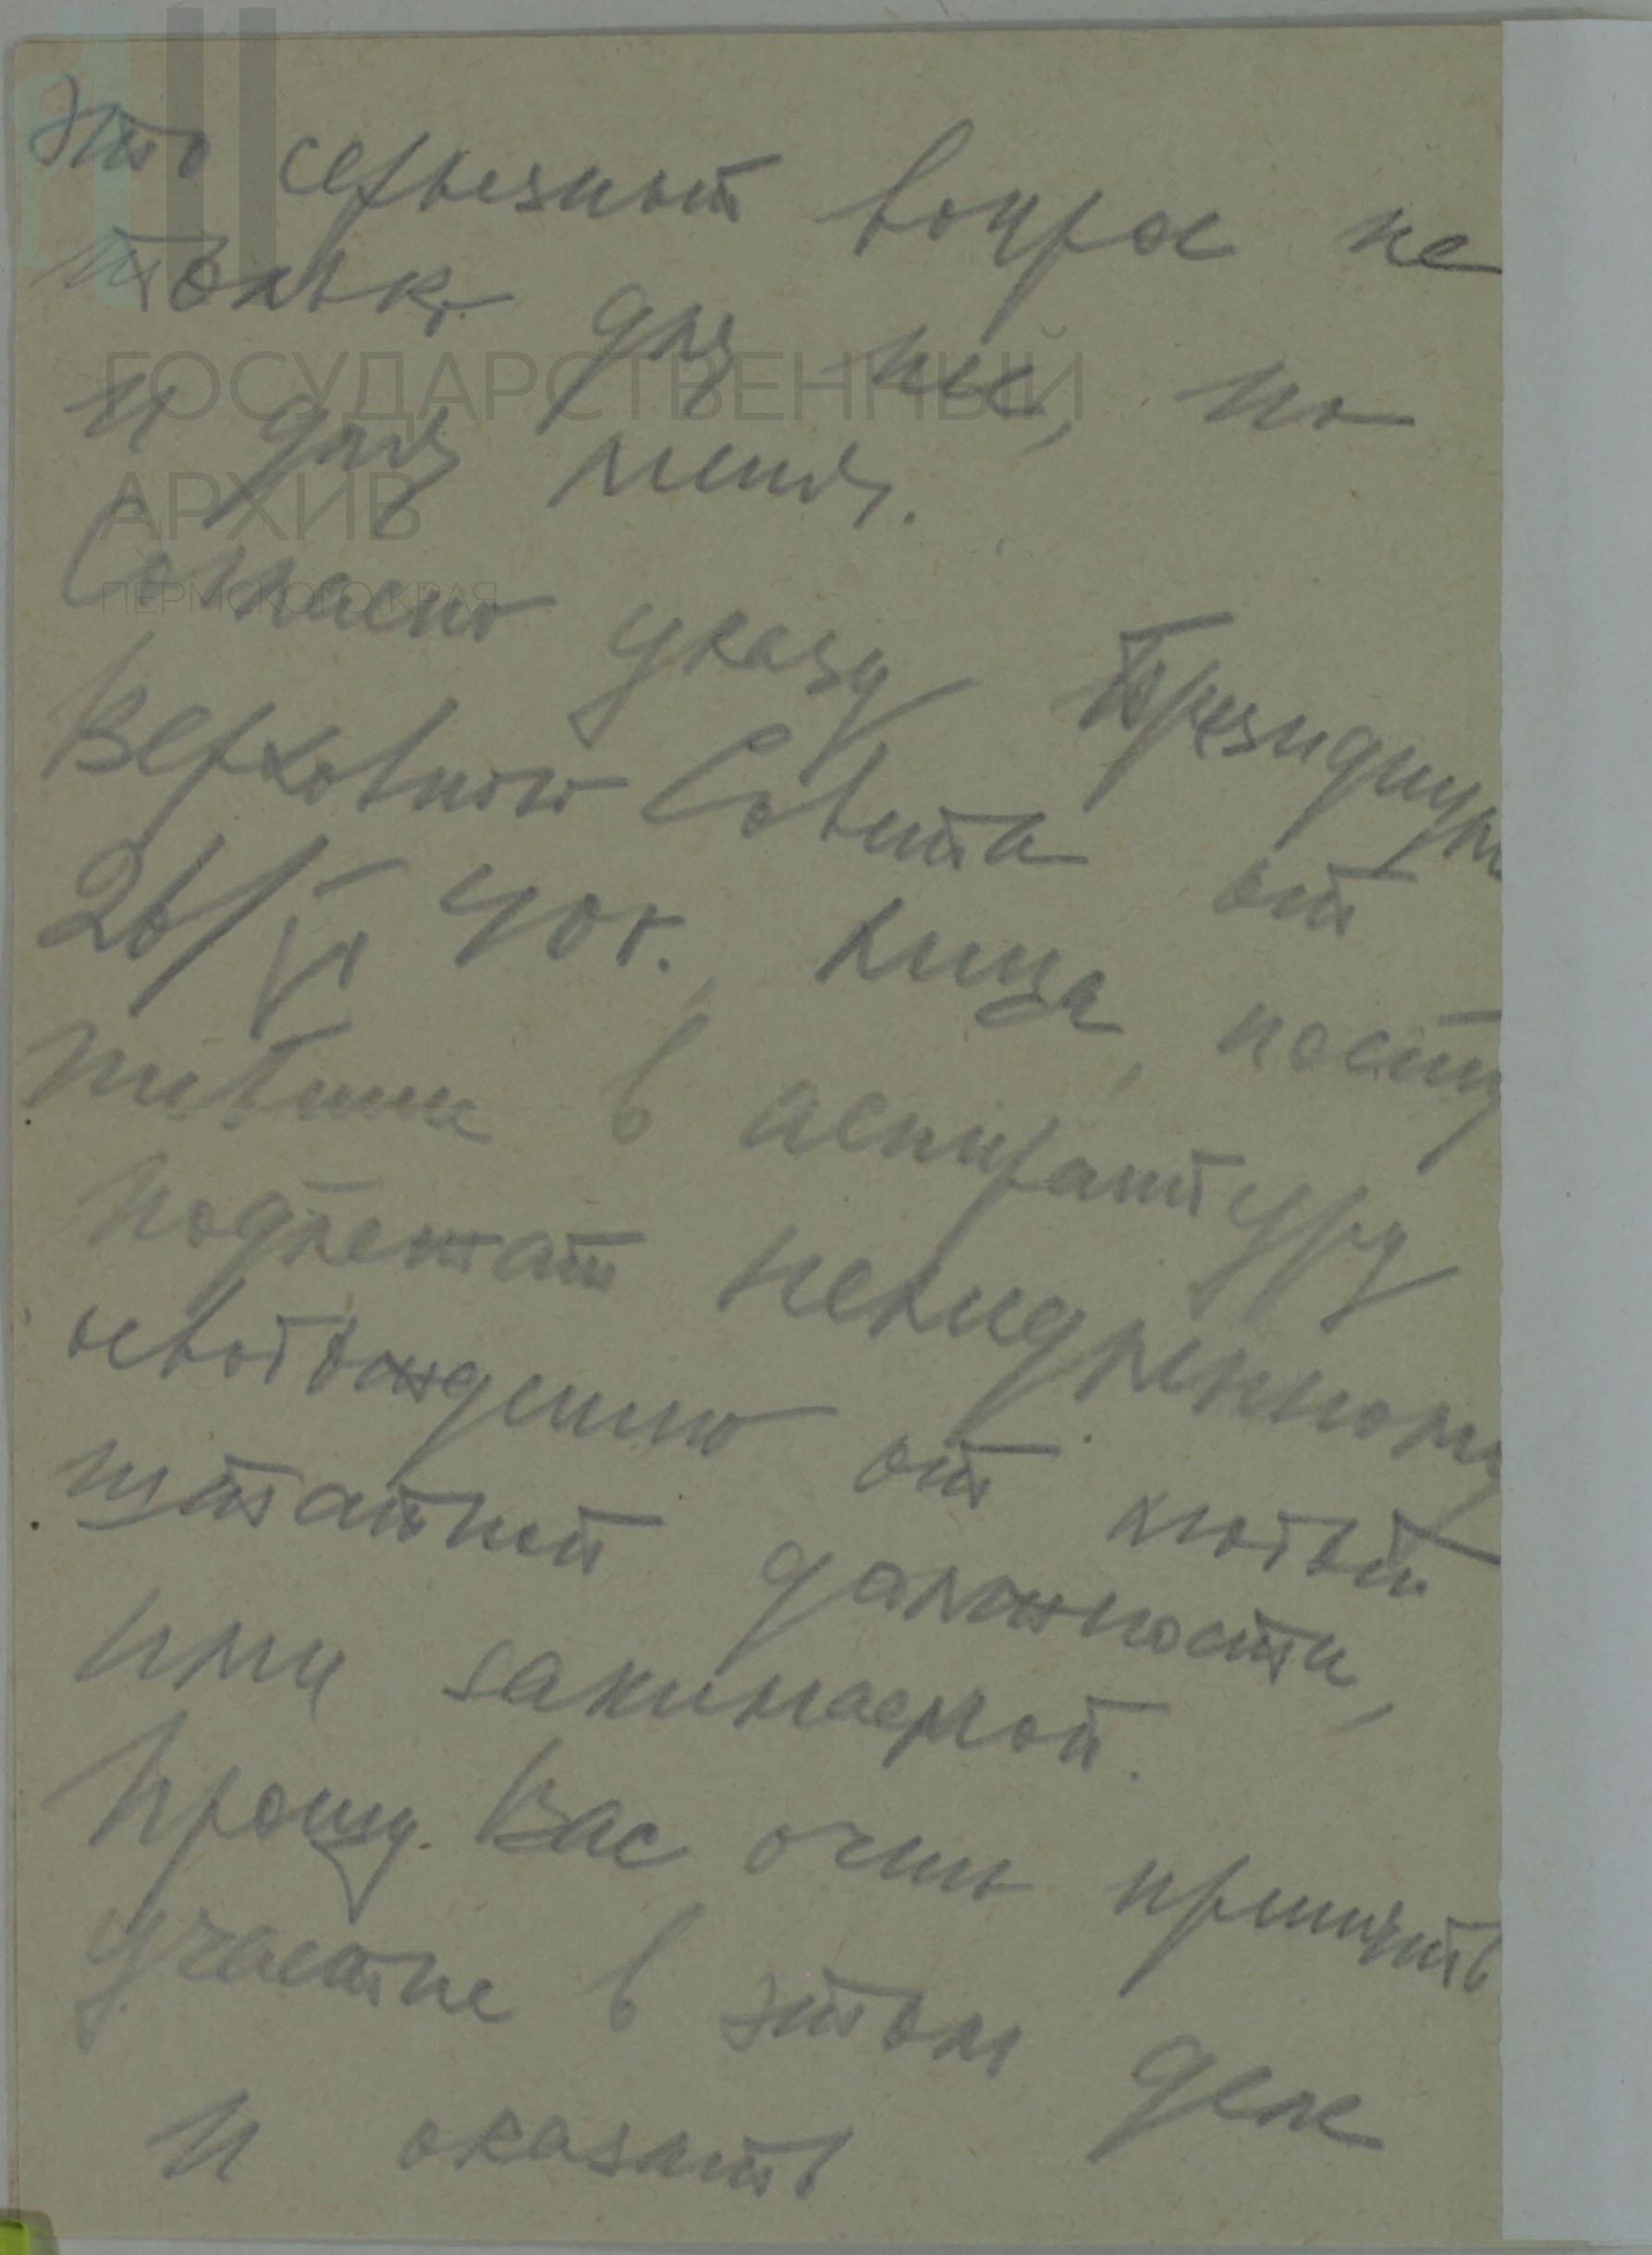 это серьезный вопрос не
только для нее, но
и для меня.
Согласно указу Президиум
Верховного Совета от
26/VI 40 г., лица, посту
пившие в аспирантуру
подлежат немедленному
освобождению от любой
штатной должности,
ими занимаемой.
Прошу Вас очень принять
участие в этом деле
и оказать
ГОСУДАРСТВЕННЫЙ
АРХИВ
ПЕРМСКОГО КРАЯ